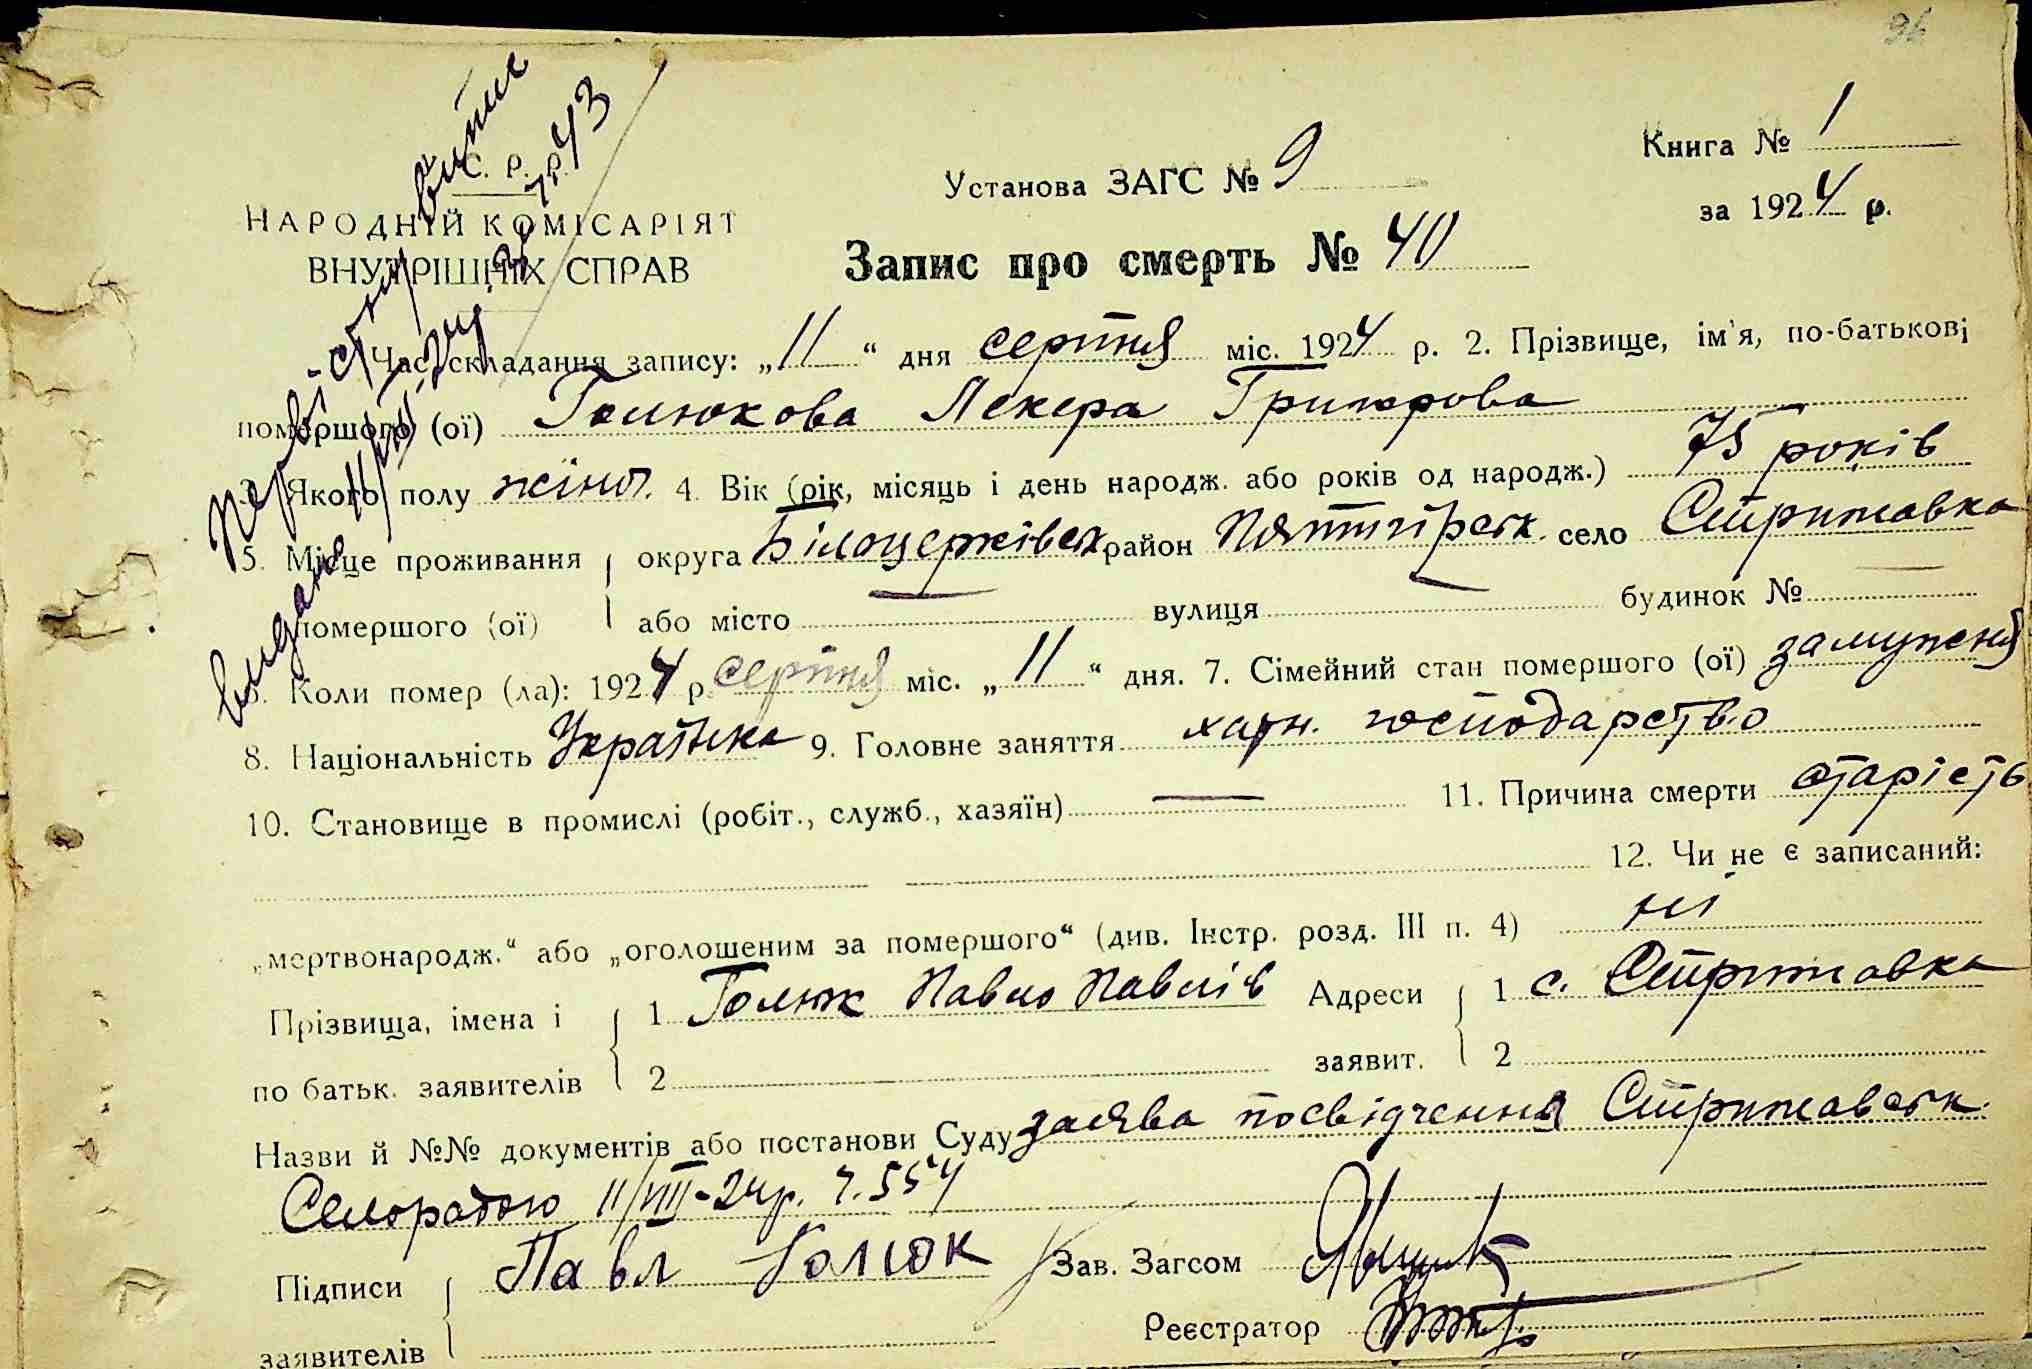 96
Книга № 1
за 1924 р.
Установа ЗАГС № 9
Запис про смерть № 40
С. Р. Р.
НАРОДНІЙ КОМІСАРІЯТ
ВНУТРІШНІХ СПРАВ
первістну витяг
видано 11/VIII-24р. 43
Час складання запису: „11“ дня серпня міс. 1924 р. 2. Прізвище, ім'я, по-батькові
помершого (ої) Голюкова Лекера Григорова
3. Якого полу жіноч. 4. Вік (рік, місяць і день народж. або років од народж.) 75 років
5. Місце проживання округа Білоцерківськ район Пятигірськ. село Стрижавка
помершого (ої) або місто — вулиця — будинок № —
6. Коли помер (ла): 1924 р. серпня міс. „11“ дня. 7. Сімейний стан помершого (ої) замужня
8. Національність Українка 9. Головне заняття хатн. господарство
10. Становище в промислі (робіт., служб., хазяїн) — 11. Причина смерти старість
12. Чи не є записаний:
„мертвонародж.“ або „оголошеним за помершого“ (див. Інстр. розд. III п. 4) ні
Прізвища, імена і 1 Голюк Павло Павлів Адреси 1 с. Стрижавка
по батьк. заявителів 2 заявит. 2
Назви й №№ документів або постанови Суду заява посвідчення Стрижавськ.
Сельрадою 11/VIII-24р. ч. 554
Підписи Павл Голюк Зав. Загсом
Реєстратор
заявителів